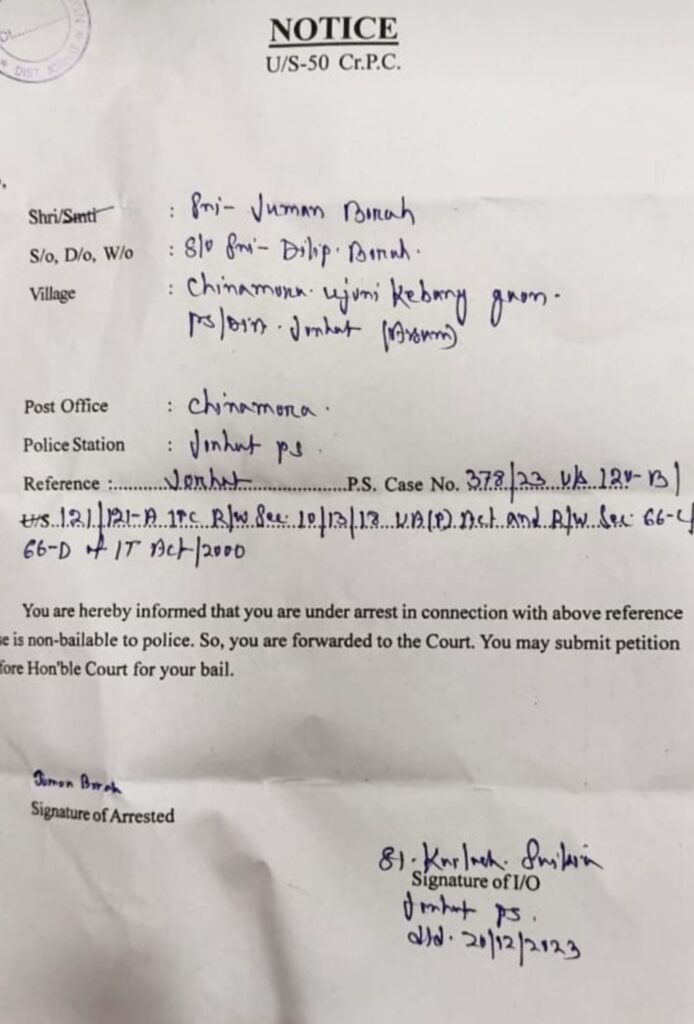 NOTICE
U/S-50 Cr.P.C.
Shri/Smti : Sri- Juman Borah
S/o, D/o, W/o : S/o Sri- Dilip. Borah.
Village : Chinamora. ujoni Kebang gaon.
PS/Dist. Jorhat (Assam)
Post Office : Chinamora.
Police Station : Jorhat PS.
Reference :..........Jorhat..................P.S. Case No. 378/23 U/s 120-B/
U/S 121/121-A IPC R/W Sec: 10/13/18 UA(P) Act and R/W Sec: 66-C/
66-D of IT Act/2000
You are hereby informed that you are under arrest in connection with above reference
se is non-bailable to police. So, you are forwarded to the Court. You may submit petition
fore Hon'ble Court for your bail.
Juman Borah
Signature of Arrested
SI.
Signature of I/O
Jorhat PS.
dtd. 20/12/2023